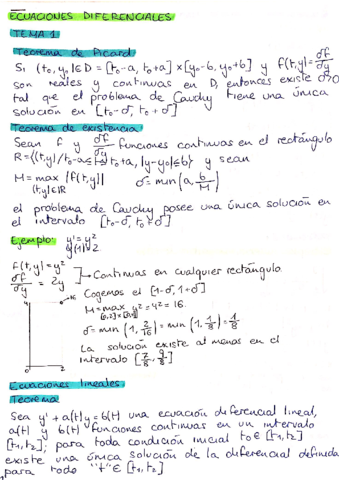 ECUACIONES DIFERENCIALES
TEMA 1
Teorema de Picard
Si (t₀,y₀)∈D = [t₀-a, t₀+a]×[y₀-b, y₀+b] y f(t,y) = σf/σy
son reales y continuas en D, entonces existe σ>0
tal que el problema de Cauchy tiene una única
solución en [t₀-σ, t₀+σ]
Teorema de existencia
Sean f y σf/σy funciones continuas en el rectángulo
R={(t,y)/t₀-a≤t≤t₀+a, |y-y₀|≤b} y sean
M = max |f(t,y)| σ=min(a, b/M)
(t,y)∈R
el problema de Cauchy posee una única solución en
el intervalo [t₀-σ, t₀+σ]
Ejemplo: y'=y²
y(1)=2
f(t,y)=y²
σf/σy = 2y
Continuas en cualquier rectángulo.
Cogemos el [1-σ, 1+σ]
M = max y² = 4² = 16.
[0,2]×[0,4]
σ = min (1, 2/16) = min (1, 1/8) = 1/8
La solución existe al menos en el
intervalo [7/8, 9/8]
Ecuaciones lineales
Teorema
Sea y' + a(t)y = b(t) una ecuación diferencial lineal,
a(t) y b(t) funciones continuas en un intervalo
[t₁,t₂]; para toda condición inicial t₀∈[t₁,t₂]
existe una única solución de la diferencial definida
para todo "t"∈[t₁,t₂]